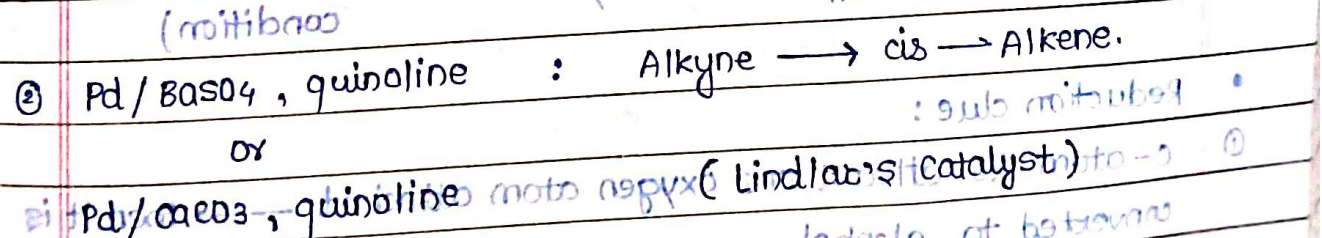 ② Pd / BaSO4 , quinoline : Alkyne ⟶ cis ⟶ Alkene.
or
Pd / CaCO3 , quinoline ( Lindlar's Catalyst )